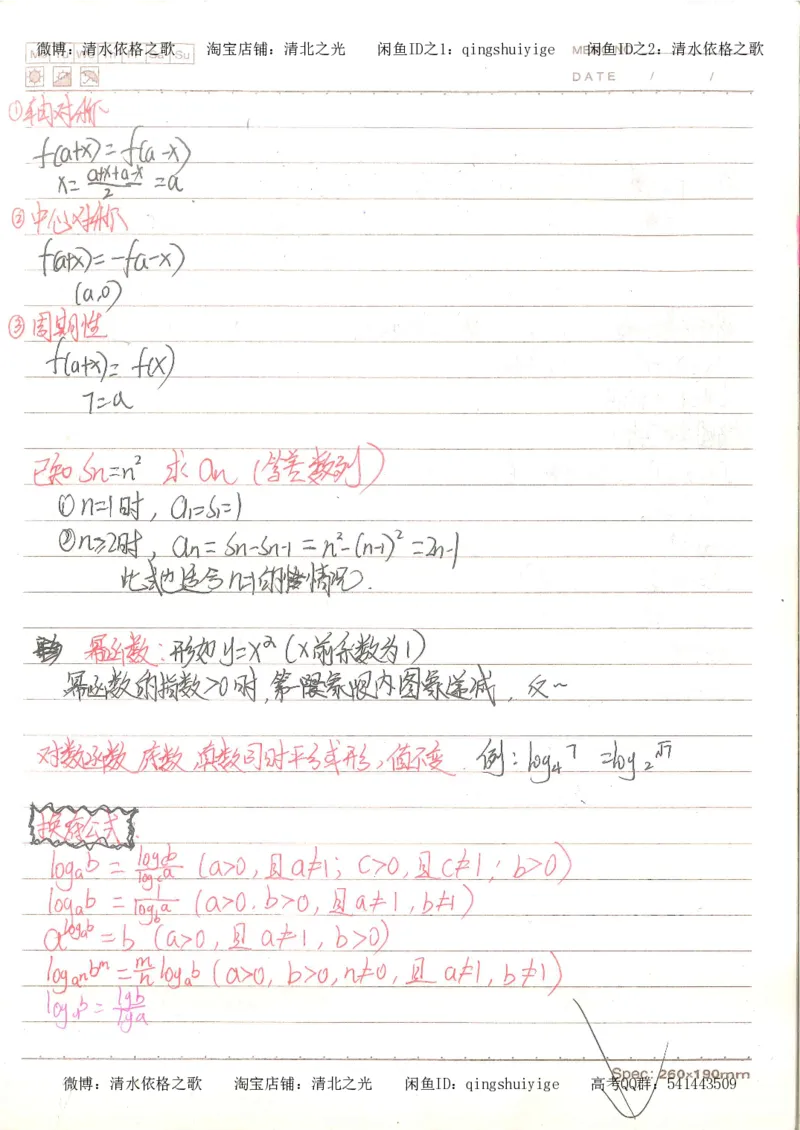 微博：清水依格之歌 淘宝店铺：清北之光 闲鱼ID之1：qingshuiyige 闲鱼ID之2：清水依格之歌
Mo Tu We Th Fr Sa Su
DATE / /
①轴对称
f(a+x)=f(a-x)
x=\frac{a+x+a-x}{2}=a
②中心对称
f(a+x)=-f(a-x)
(a,0)
③周期性
f(a+x)=f(x)
T=a
已知Sn=n² 求an (等差数列)
①n=1时，a₁=S₁=1
②n≥2时，an=Sn-Sn-1=n²-(n-1)²=2n-1
此式也适合n=1的情况.
幂函数：形如y=x^α (x前系数为1)
幂函数的指数>0时，第一限象限内图象递减，反~
对数函数 底数 真数同时平方或开形，值不变. 例：log₄7 =log₂√7
换底公式
log_a b = \frac{log_c b}{log_c a} (a>0，且a≠1；c>0，且c≠1；b>0)
log_a b = \frac{1}{log_b a} (a>0.b>0，且a≠1，b≠1)
a^{log_a b}=b (a>0，且a≠1，b>0)
log_{a^n} b^m = \frac{m}{n} log_a b (a>0，b>0，n≠0，且a≠1，b≠1)
log_a b = \frac{lgb}{lga}
Spec: 260x190mm
微博：清水依格之歌 淘宝店铺：清北之光 闲鱼ID：qingshuiyige 高考QQ群：541443509